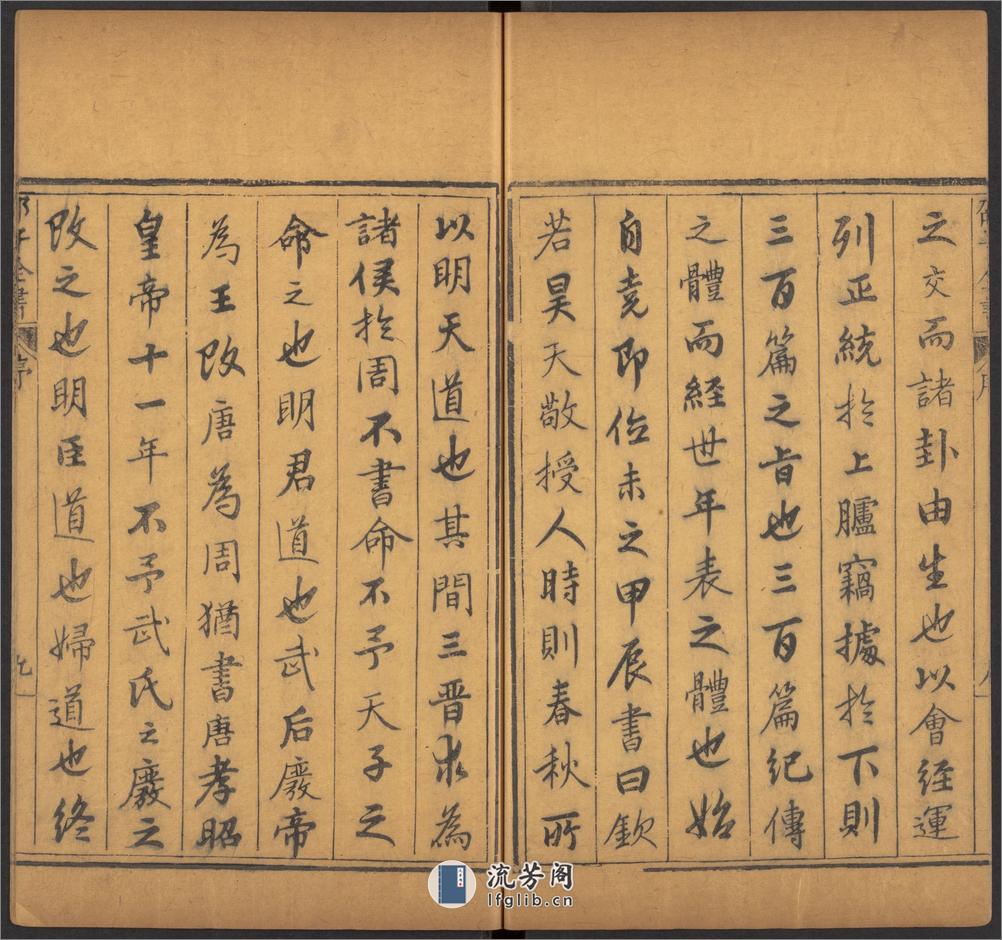 之交而諸卦由生也以會經運
列正統於上臚竊據於下則
三百篇之旨也三百篇紀傳
之體而經世年表之體也始
自堯即位未之甲辰書曰欽
若昊天敬授人時則春秋所
以明天道也其間三晉求為
諸侯於周不書命不予天子之
命之也明君道也武后廢帝
為王改唐為周猶書唐孝昭
皇帝十一年不予武氏之廢之
改之也明臣道也婦道也終
子全書 序 九
流芳阁
lfglib.cn